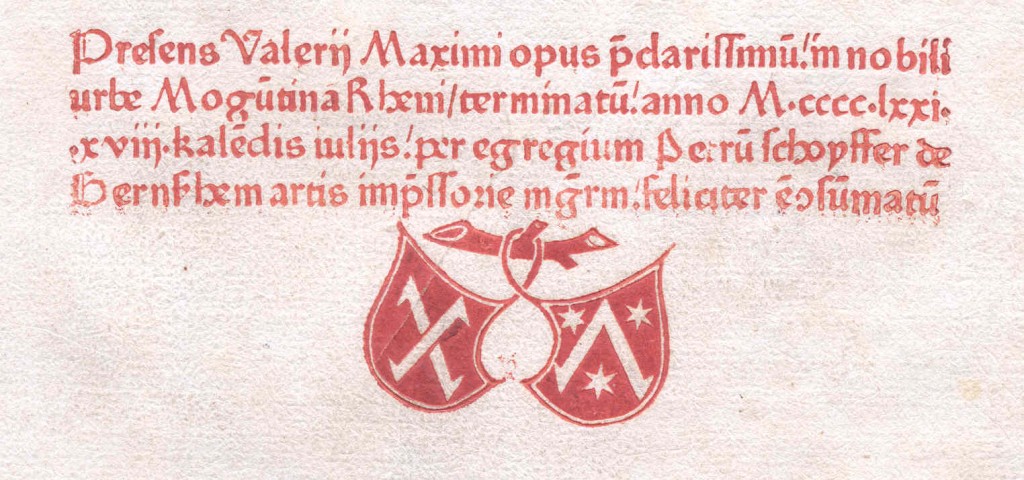 Presens Valerii Maximi opus p̄clarissimū/ in nobili
urbe Mogūtina Rheni/ terminatū/ anno M.cccc.lxxi.
.xviij.kalēdis iulijs/ per egregium Petrū schoyffer de
Gernsshem artis imp̄ssorie mḡrm/ feliciter ē ↄsūmatū